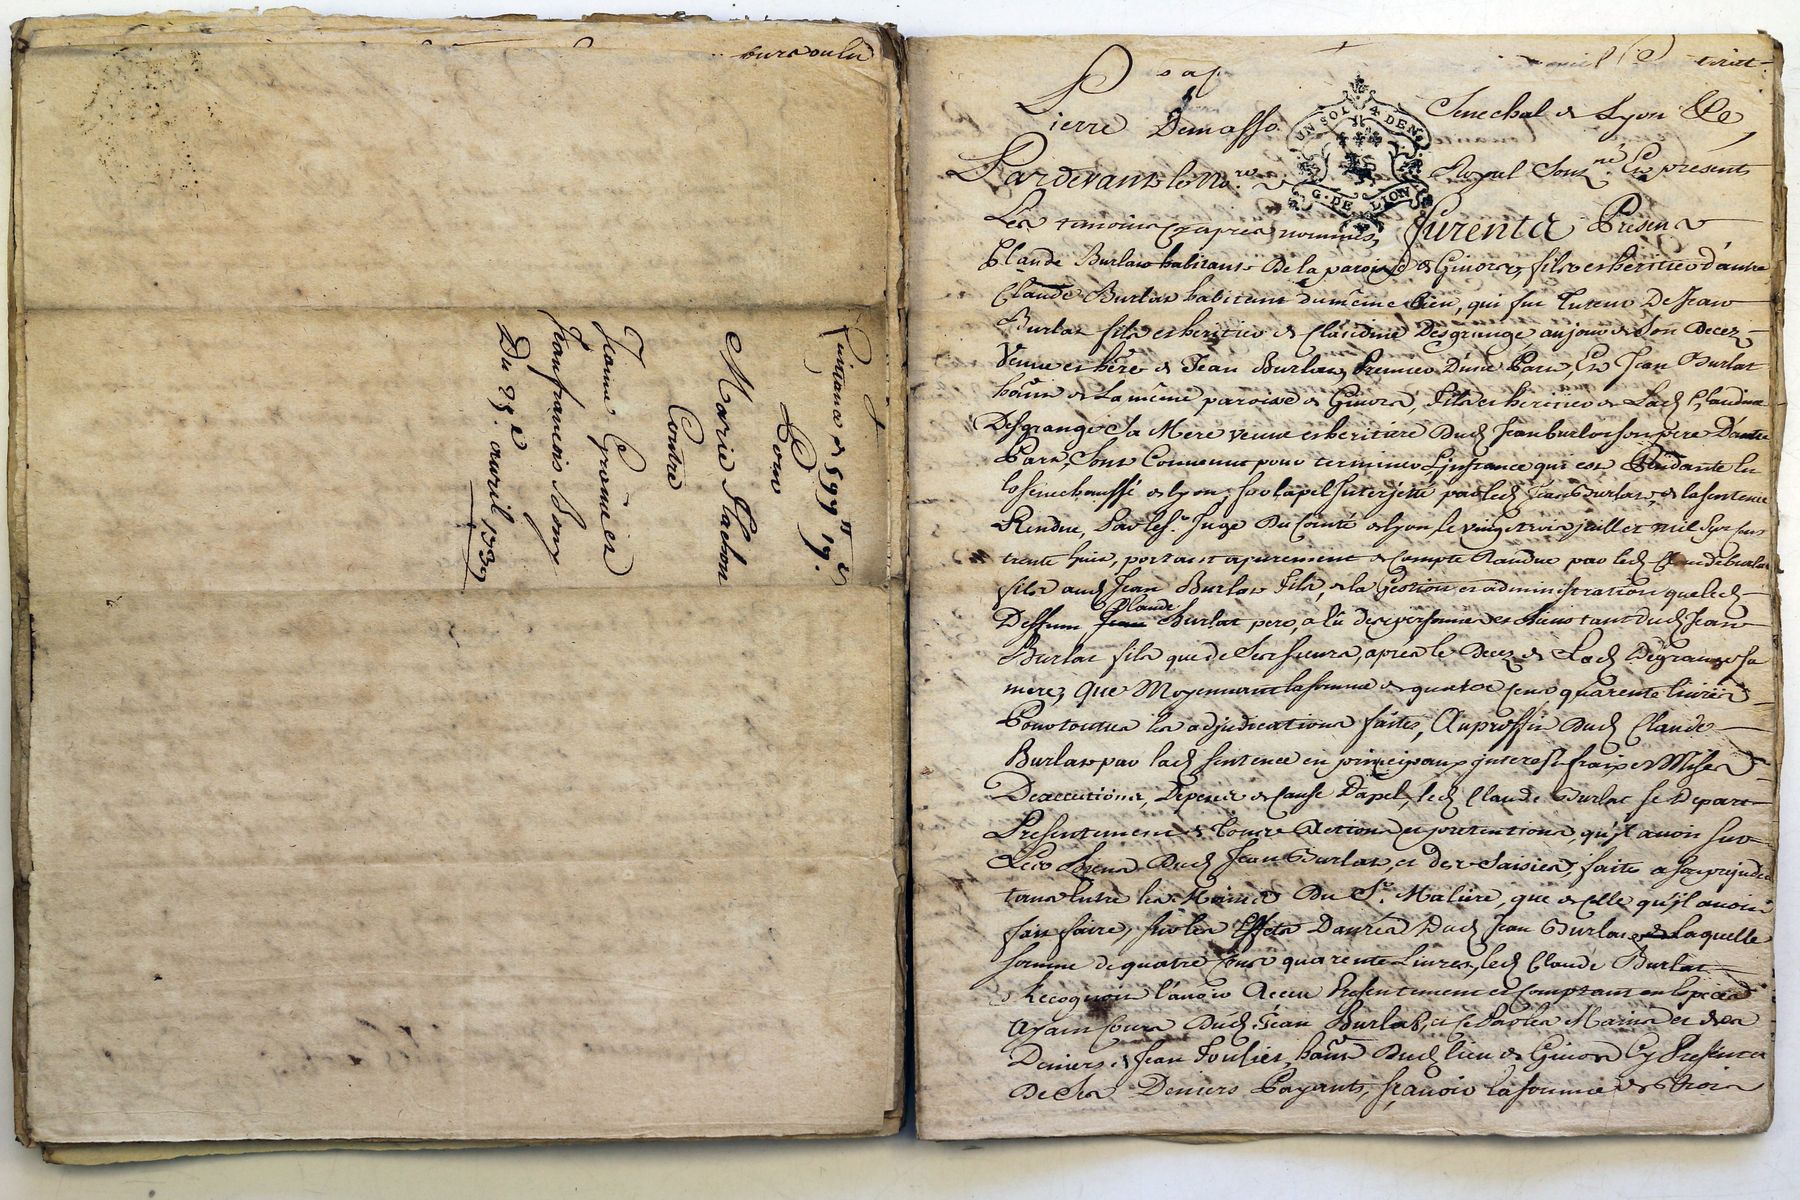 Quittance de 599ᵗᵗ 19ˢ
Pour
Marie Flachon
Contre
Jeanne Grenier et
Jean françois Bony
Du 25ᵉ avril 1739
Pierre Demasso Senechal de Lyon &c
UN SOL 4 DEN
G. DE LION
Pardevant le No.re Royal Sous.né Et présents
Les temoins cy apres nommés, furent Present
Claude Burlat habitant De la paroisse de Givors, fils et heritier d'autre
Claude Burlat habitant du même lieu, qui fut tuteur De Jean
Burlat fils et heritier de Claudine Desgrange, au jour de Son Decez
Veuve et hére de Jean Burlat, Premier D'une Part, Et Jean Burlat
hãnt de La même paroisse de Givors, fils et heritier de Lad. Claudine
Desgrange Sa Mere veuve et heritiere Dud. Jean burlat son pere D'autre
Part, Sont Convenus pour terminer L'instance qui est Pendante en
la senechaussé de lyon, sur lapel Interjetté par led. Jean Burlat, de la sentence
Rendue, Par le Sr. Juge Du Comté de lyon, le vingt trois juillet mil Sept Cent
trente huit, portant apurement de Compte Randue par led. Claude burlat
fils aud. Jean Burlat fils, de la Gestion et administration que led.
Deffunt Claude Burlat pere, a eû des personnes et biens tant dud. Jean
Burlat fils que de Ses Soeurs, apres le Decez de Lad. Degrange sa
mere, que Moyennant la somme de quatre cent quarente livres
Pour toutes les adjudications faites, Au proffit Dud. Claude
Burlat par lad. sentence en principaux interest fraix et Mises
D'exccutions, Depens de Cause D'apel, led. Claude Burlat se Depart
Presentement de toutes Actions et pretentions, qu'jl avoit sur
Les Biens Dud. Jean Burlat, et des Saisies, faite a Sa prejudice
tant Entre les Mains Du Sr. Maliere, que de Celle qu'jl avoit
fait faire, sur les Effets Danrés Dud. Jean Burlat, de laquelle
somme de quatre Cent quarente Livres, led. Claude Burlat
Recognoit l'avoir Receu Presentement et Comptant en Especes
ayant Cours Dud. Jean Burlat, et Par les Mains et des
Deniers de Jean hãnt Dud. lieu de Givors Cy Present
De Ses Deniers Payants, sçavoir la somme de trois